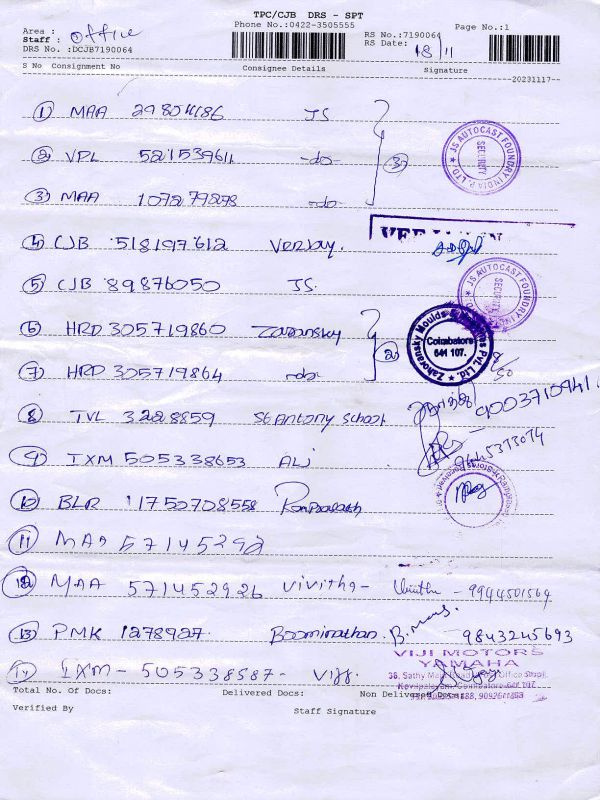 TPC/CJB DRS - SPT
Phone No.:0422-3505555
Page No.:1
Area :
Staff : Office
DRS No. :DCJB7190064
RS No.:7190064
RS Date: 18/11
S No Consignment No Consignee Details Signature
20231117
1 MAA JS
2 VPL 521539611 -do-
3 MAA 107279278 -do-
3
JS AUTOCAST FOUNDRY INDIA P. LTD.
SECURITY
4 CJB 518197612
5 CJB 89876050 JS.
JS AUTOCAST FOUNDRY INDIA
SECURITY
6 HRD 305719860 Zahransky
7 HRD 305719864 -do-
2
Zahoransky Moulds & Machines Pvt. Ltd.
Coimbatore
641 107.
8 TVL 3228859 St Antony School
9003710941
9 IXM 505338653 ALJ
10 BLR 11750708558 Ramprakash
11 MAA 57145292
12 MAA 571452926 Vivitha - 9944501569
13 PMK 1278927 Boominathan. B. 9843245693
VIJI MOTORS
YAMAHA
14 IXM - 505338587 - Viji.
Total No. Of Docs: Delivered Docs: Non Delivered Docs:
Verified By
Staff Signature